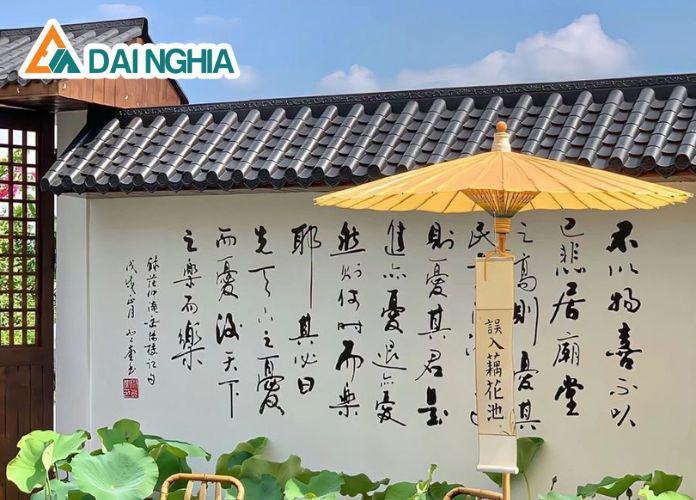 DAI NGHIA
不以物喜不以
己悲居廟堂
之高則憂其
民
則憂其君是
進亦憂退亦憂
然則何時而樂
耶其必曰
先天下之憂
而憂後天下
之樂而樂
錄范仲淹岳陽樓記句
戊戌 月 書
誤入藕花池